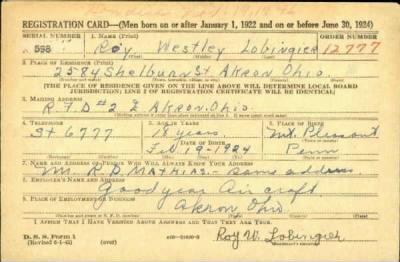 REGISTRATION CARD—(Men born on or after January 1, 1922 and on or before June 30, 1924)
SERIAL NUMBER 1. NAME (Print) ORDER NUMBER
598 Roy Westley Lobingier 12777
2. PLACE OF RESIDENCE (Print)
2584 Shelburn St. Akron Ohio.
(THE PLACE OF RESIDENCE GIVEN ON THE LINE ABOVE WILL DETERMINE LOCAL BOARD
JURISDICTION; LINE 2 OF REGISTRATION CERTIFICATE WILL BE IDENTICAL)
3. MAILING ADDRESS
R.F.D #2 Akron. Ohio.
4. TELEPHONE 5. AGE IN YEARS 6. PLACE OF BIRTH
St 6777 18 years. Mt. Pleasant
DATE OF BIRTH
Feb 19-1924 Penn
7. NAME AND ADDRESS OF PERSON WHO WILL ALWAYS KNOW YOUR ADDRESS
R. D. Mathias - same address
8. EMPLOYER'S NAME AND ADDRESS
Goodyear Aircraft
9. PLACE OF EMPLOYMENT OR BUSINESS
Akron Ohio
I AFFIRM THAT I HAVE VERIFIED ABOVE ANSWERS AND THAT THEY ARE TRUE.
D. S. S. Form 1
(over) Roy W. Lobingier